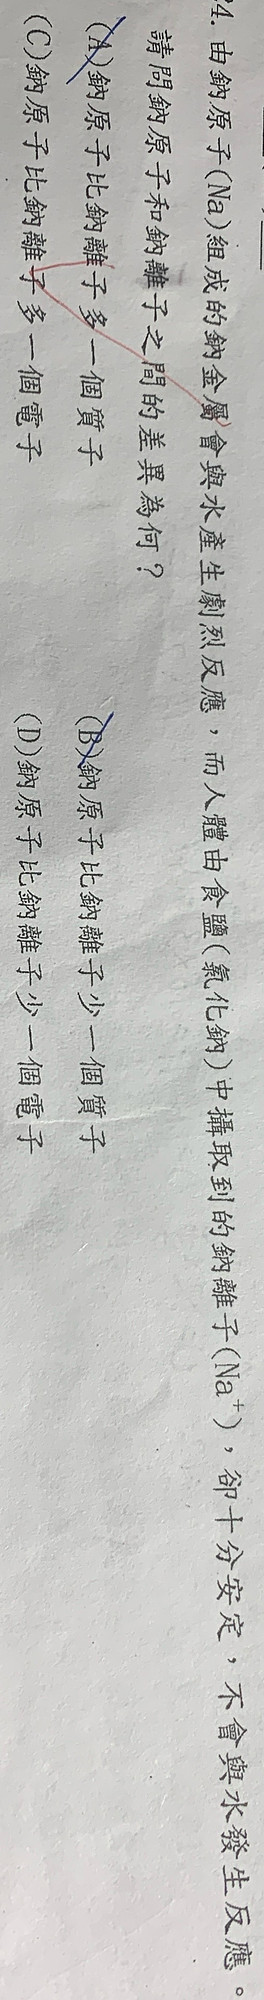 24. 由鈉原子(Na)組成的鈉金屬會與水產生劇烈反應，而人體由食鹽(氯化鈉)中攝取到的鈉離子(Na⁺)，卻十分安定，不會與水發生反應。
請問鈉原子和鈉離子之間的差異為何？
(A)鈉原子比鈉離子多一個質子 (B)鈉原子比鈉離子少一個質子
(C)鈉原子比鈉離子多一個電子 (D)鈉原子比鈉離子少一個電子